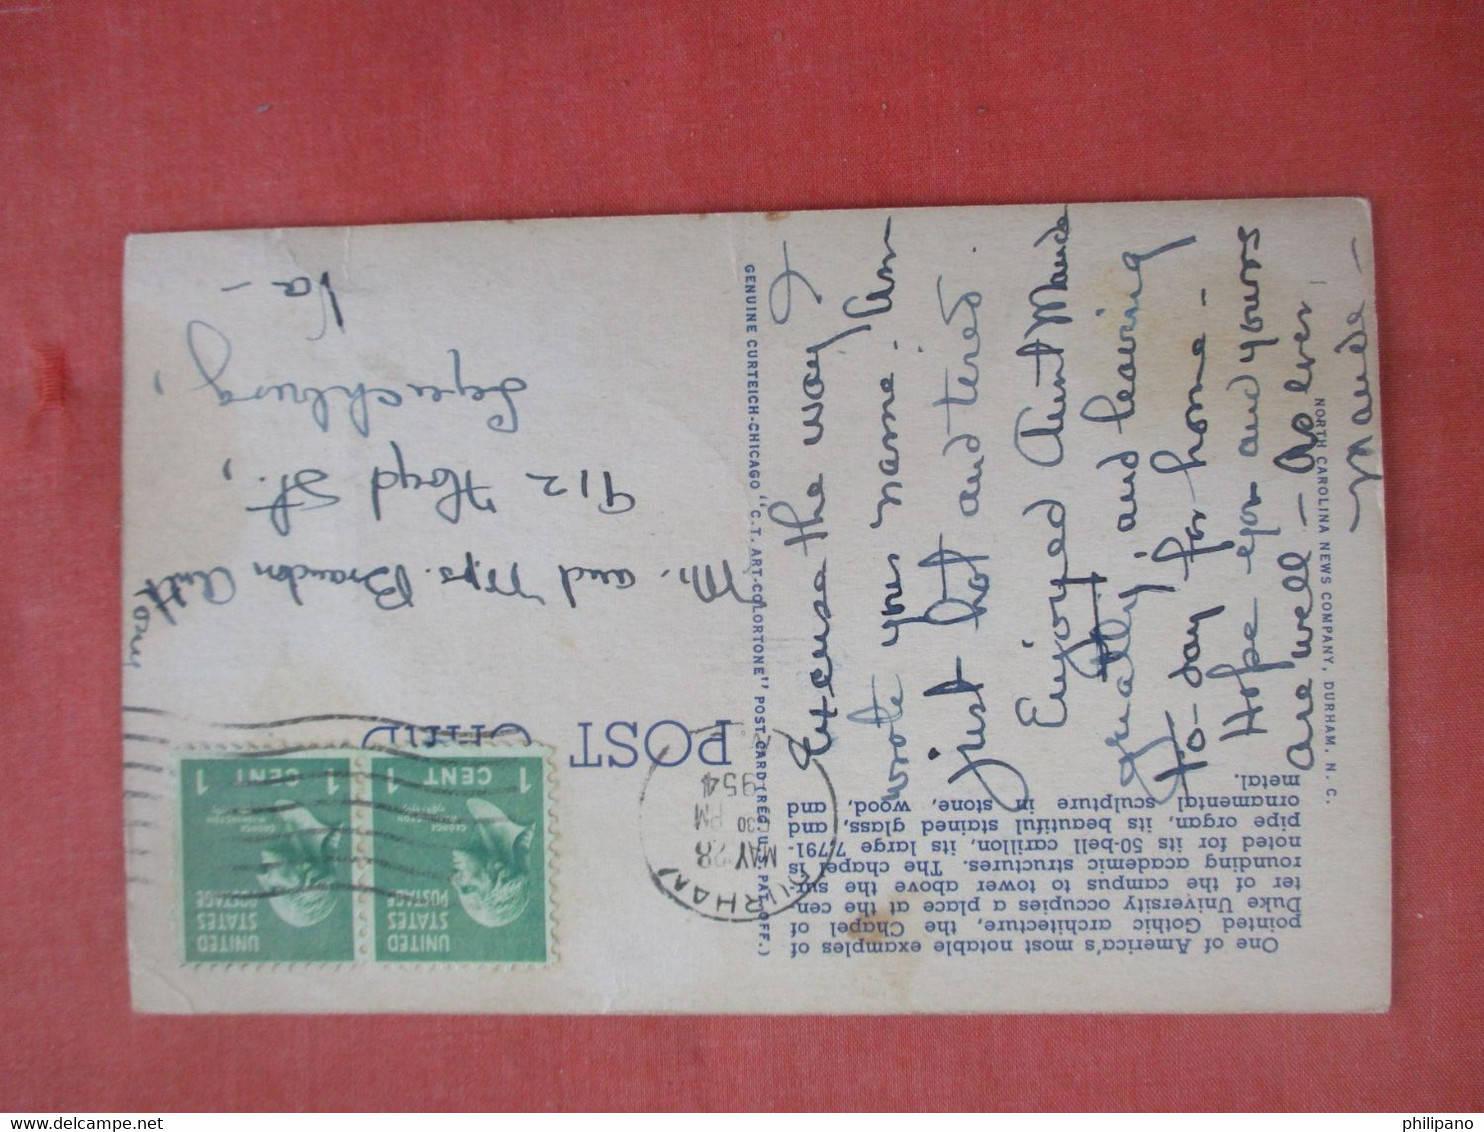 One of America's most notable examples of
pointed Gothic architecture, the Chapel of
Duke University occupies a place at the cen
ter of the campus to tower above the sur-
rounding academic structures. The chapel is
noted for its 50-bell carillon, its large, 7,791-
pipe organ, its beautiful stained glass, and
ornamental sculpture in stone, wood, and
metal.
Excuse the way I
wrote your name. Am
just hot and tired.
Enjoyed Aunt Maude
greatly and leaving
to-day for home -
Hope you and yours
are well - As ever
Maude -
NORTH CAROLINA NEWS COMPANY, DURHAM, N. C.
GENUINE CURTEICH-CHICAGO "C.T. ART-COLORTONE" POST CARD (REG. U.S. PAT. OFF.)
POST CARD
DURHAM
MAY 28
30 PM
1954
UNITED STATES POSTAGE
GEORGE WASHINGTON
1 CENT 1
UNITED STATES POSTAGE
GEORGE WASHINGTON
1 CENT 1
Mr. and Mrs. Brandon Anthony
912 Floyd St.,
Lynchburg,
Va -
philipano